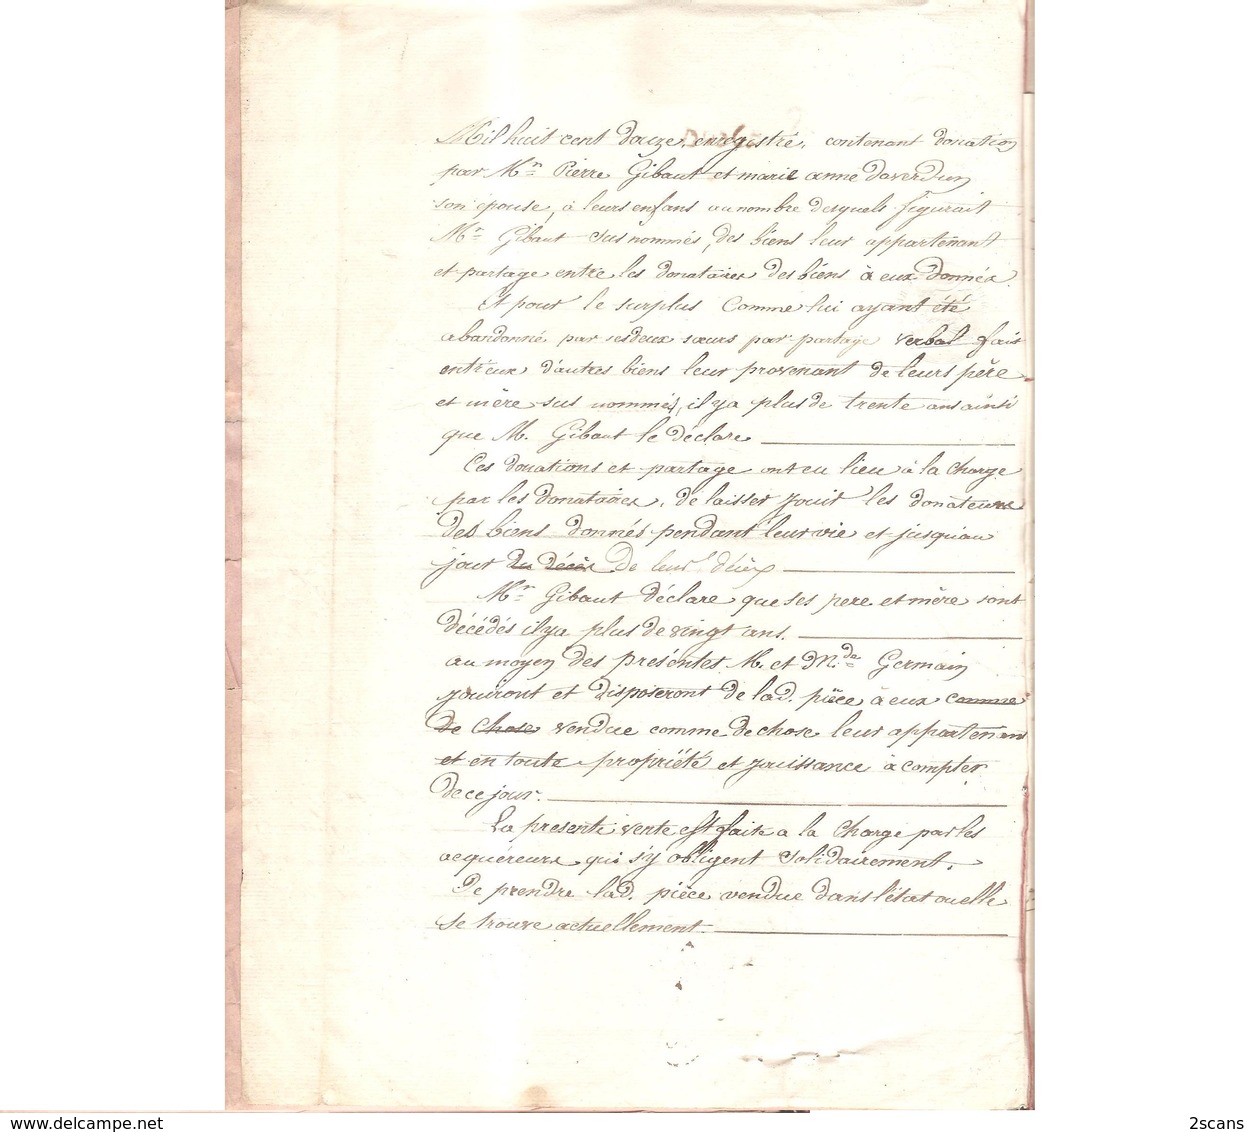 Mil huit cent douze, enregistré, contenant donation
par Mr. Pierre Gibaut et marie anne daverdun
son épouse, à leurs enfans au nombre desquels figurait
Mr. Gibaut susnommés, des biens leur appartenant
et partage entre les donataires des biens à eux donnés.
Et pour le surplus comme lui ayant été
abandonné par ses deux sœurs par partage verbal fait
entr'eux d'autres biens leur provenant de leurs père
et mère sus nommés, il y a plus de trente ans ainsi
que M. Gibaut le déclare
Ces donations et partage ont eu lieu à la charge
par les donataires, de laisser jouir les donateurs
des biens donnés pendant leur vie et jusqu'au
jour du décès de leur décès
Mr. Gibaut déclare que ses pere et mère sont
décédés il y a plus de vingt ans.
au moyen des présentes M. et Mde. Germain
jouiront et disposeront de lad. pièce à eux comme
de chose vendue comme de chose leur appartenant
et en toute propriété et jouissance à compter
de ce jour.
La presente vente est faite a la charge par les
acquéreurs qui s'y obligent solidairement,
De prendre lad. pièce vendue dans l'état ou elle
se trouve actuellement.
2scans